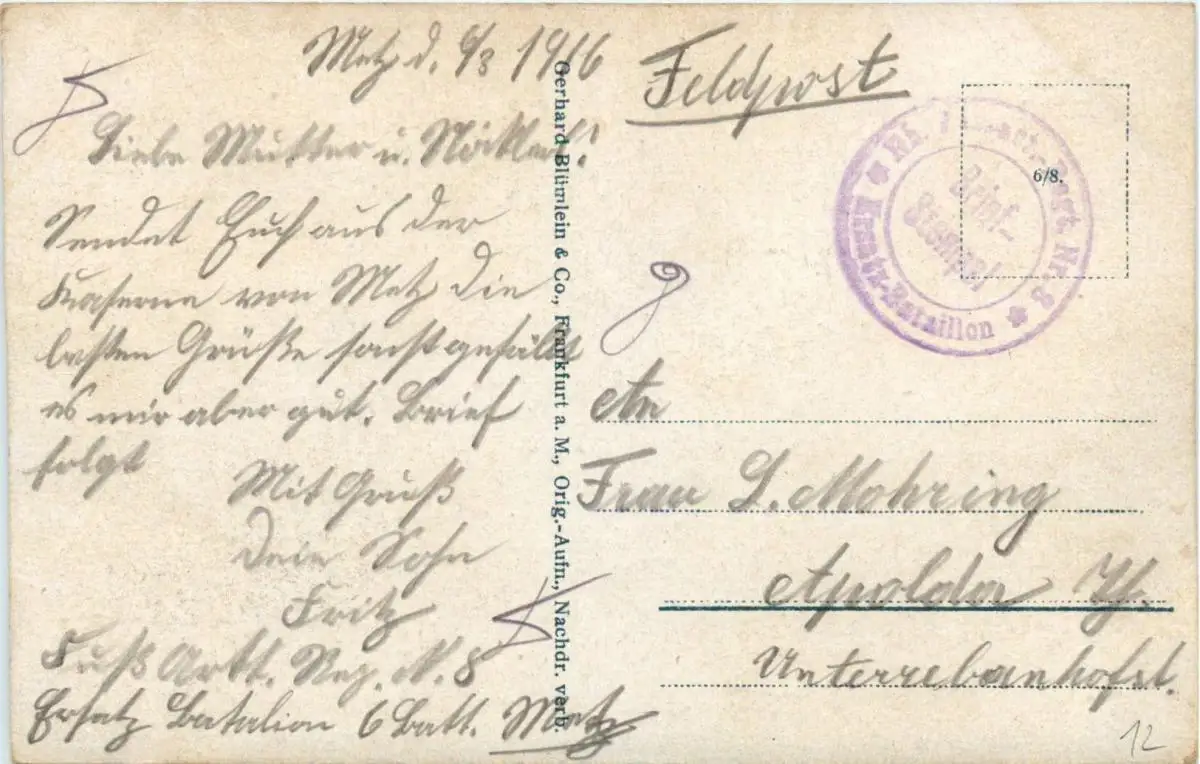 Metz d. 6/3 1916
Liebe Mutter u.
Sendet Euch aus der
Kaserne von Metz die
besten Grüße sonst gefällt
es mir aber gut. Brief
folgt
Mit Gruß
Dein Sohn
Fritz
Fuß Artt. Reg. N. 8
Ersatz Batalion 6 Batt. Metz
Gerhard Blümlein & Co., Frankfurt a. M., Orig.-Aufn., Nachdr. verb.
Feldpost
Rh. Regt. Nr. 8
Ersatz-Bataillon
Brief-
Stempel
6/8.
An
Frau L. Mohring
Apolda Th.
Unterrebahnhofst.
12